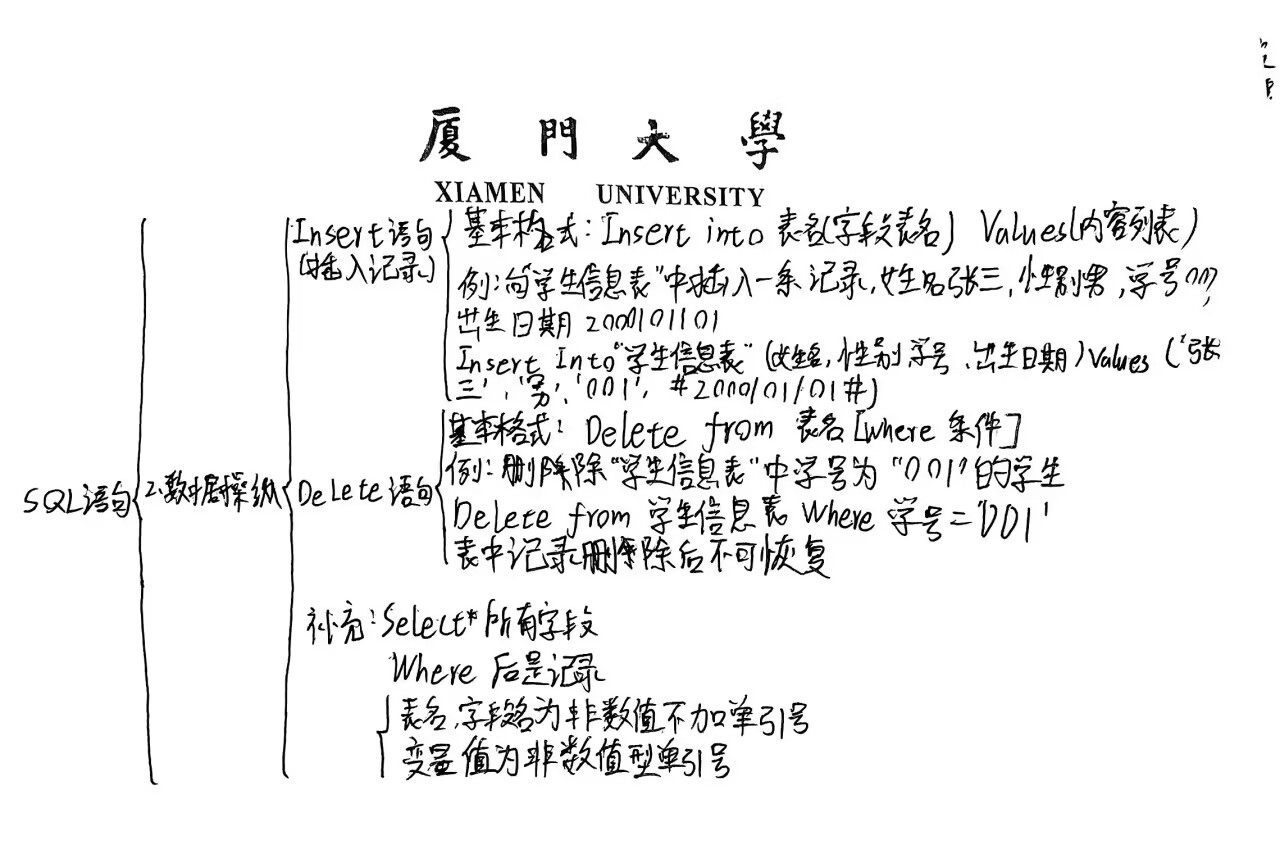 厦門大學
XIAMEN UNIVERSITY
SQL语句
2.数据操纵
Insert语句
(插入记录)
基本格式：Insert into 表名(字段表名) Values(内容列表)
例：向"学生信息表"中插入一条记录,姓名张三,性别男,学号001,
出生日期 2000/01/01
Insert Into"学生信息表"(姓名,性别,学号,出生日期)Values('张
三','男','001',#2000/01/01#)
Delete语句
基本格式：Delete from 表名[where 条件]
例：删除"学生信息表"中学号为"001"的学生
Delete from 学生信息表 Where 学号='001'
表中记录删除后不可恢复
补充：Select*所有字段
Where 后是记录
表名,字段名为非数值不加单引号
变量值为非数值型单引号